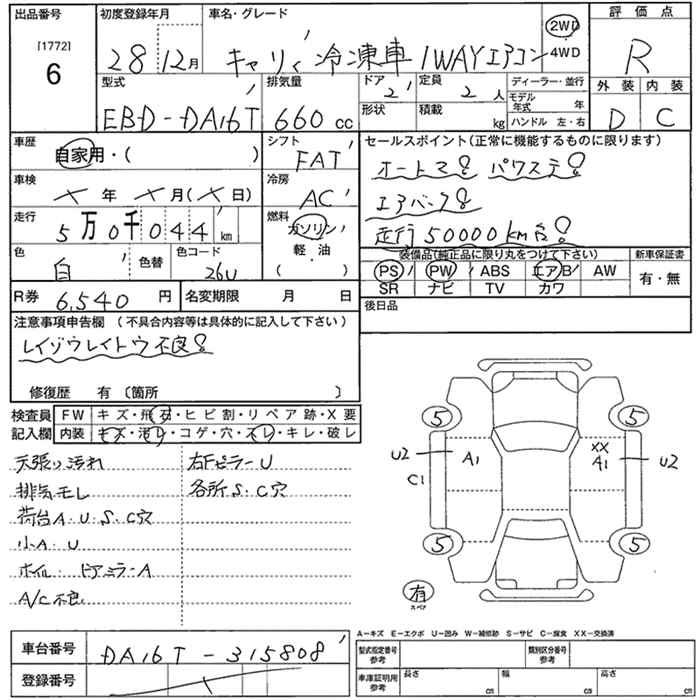 出品番号
[1772]
6
初度登録年月
28年12月
車名・グレード
キャリィ 冷凍車 1WAYエアコン
2WD
4WD
評価点
R
外装 内装
D C
型式
EBD-DA16T
排気量
660 cc
ドア
2
定員
2 人
形状
積載
kg
ディーラー・並行
モデル年式 年
ハンドル 左・右
車歴
自家用・( )
シフト
FAT
車検
年 月 ( 日)
冷房
AC
走行
5万0千044 km
燃料
ガソリン
軽・油
( )
色
白
色替
色コード
26U
R券 6,540 円
名変期限 月 日
セールスポイント(正常に機能するものに限ります)
オートマ! パワステ!
エアバッグ!
走行50000km台!
装備品(純正品に限り丸をつけて下さい)
PS PW ABS エアB AW
SR ナビ TV カワ
新車保証書
有・無
後日品
注意事項申告欄 (不具合内容等は具体的に記入して下さい)
レイゾウレイトウ不良!
修復歴 有 〔箇所 〕
検査員
記入欄
FW キズ・飛石・ヒビ割・リペア跡・X要
内装 キズ・汚レ・コゲ・穴・スレ・キレ・破レ
天張り汚れ
排気モレ
荷台A・U・S・C穴
小A・U
ホイル・ドアミラーA
A/C不良
右Fピラー U
各所 S・C穴
5 5
U2 A1 XX A1 U2
C1
5 5
有
スペア
A-キズ E-エクボ U-凹み W-補修跡 S-サビ C-腐食 XX-交換済
車台番号 DA16T-315808
登録番号
型式指定番号
参考
類別区分番号
参考
車庫証明用
参考
長さ cm
幅 cm
高さ cm